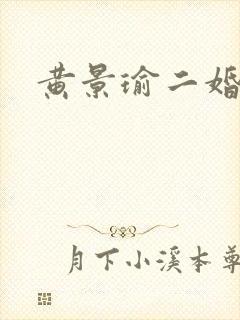 黄景瑜二婚
月下小溪本尊